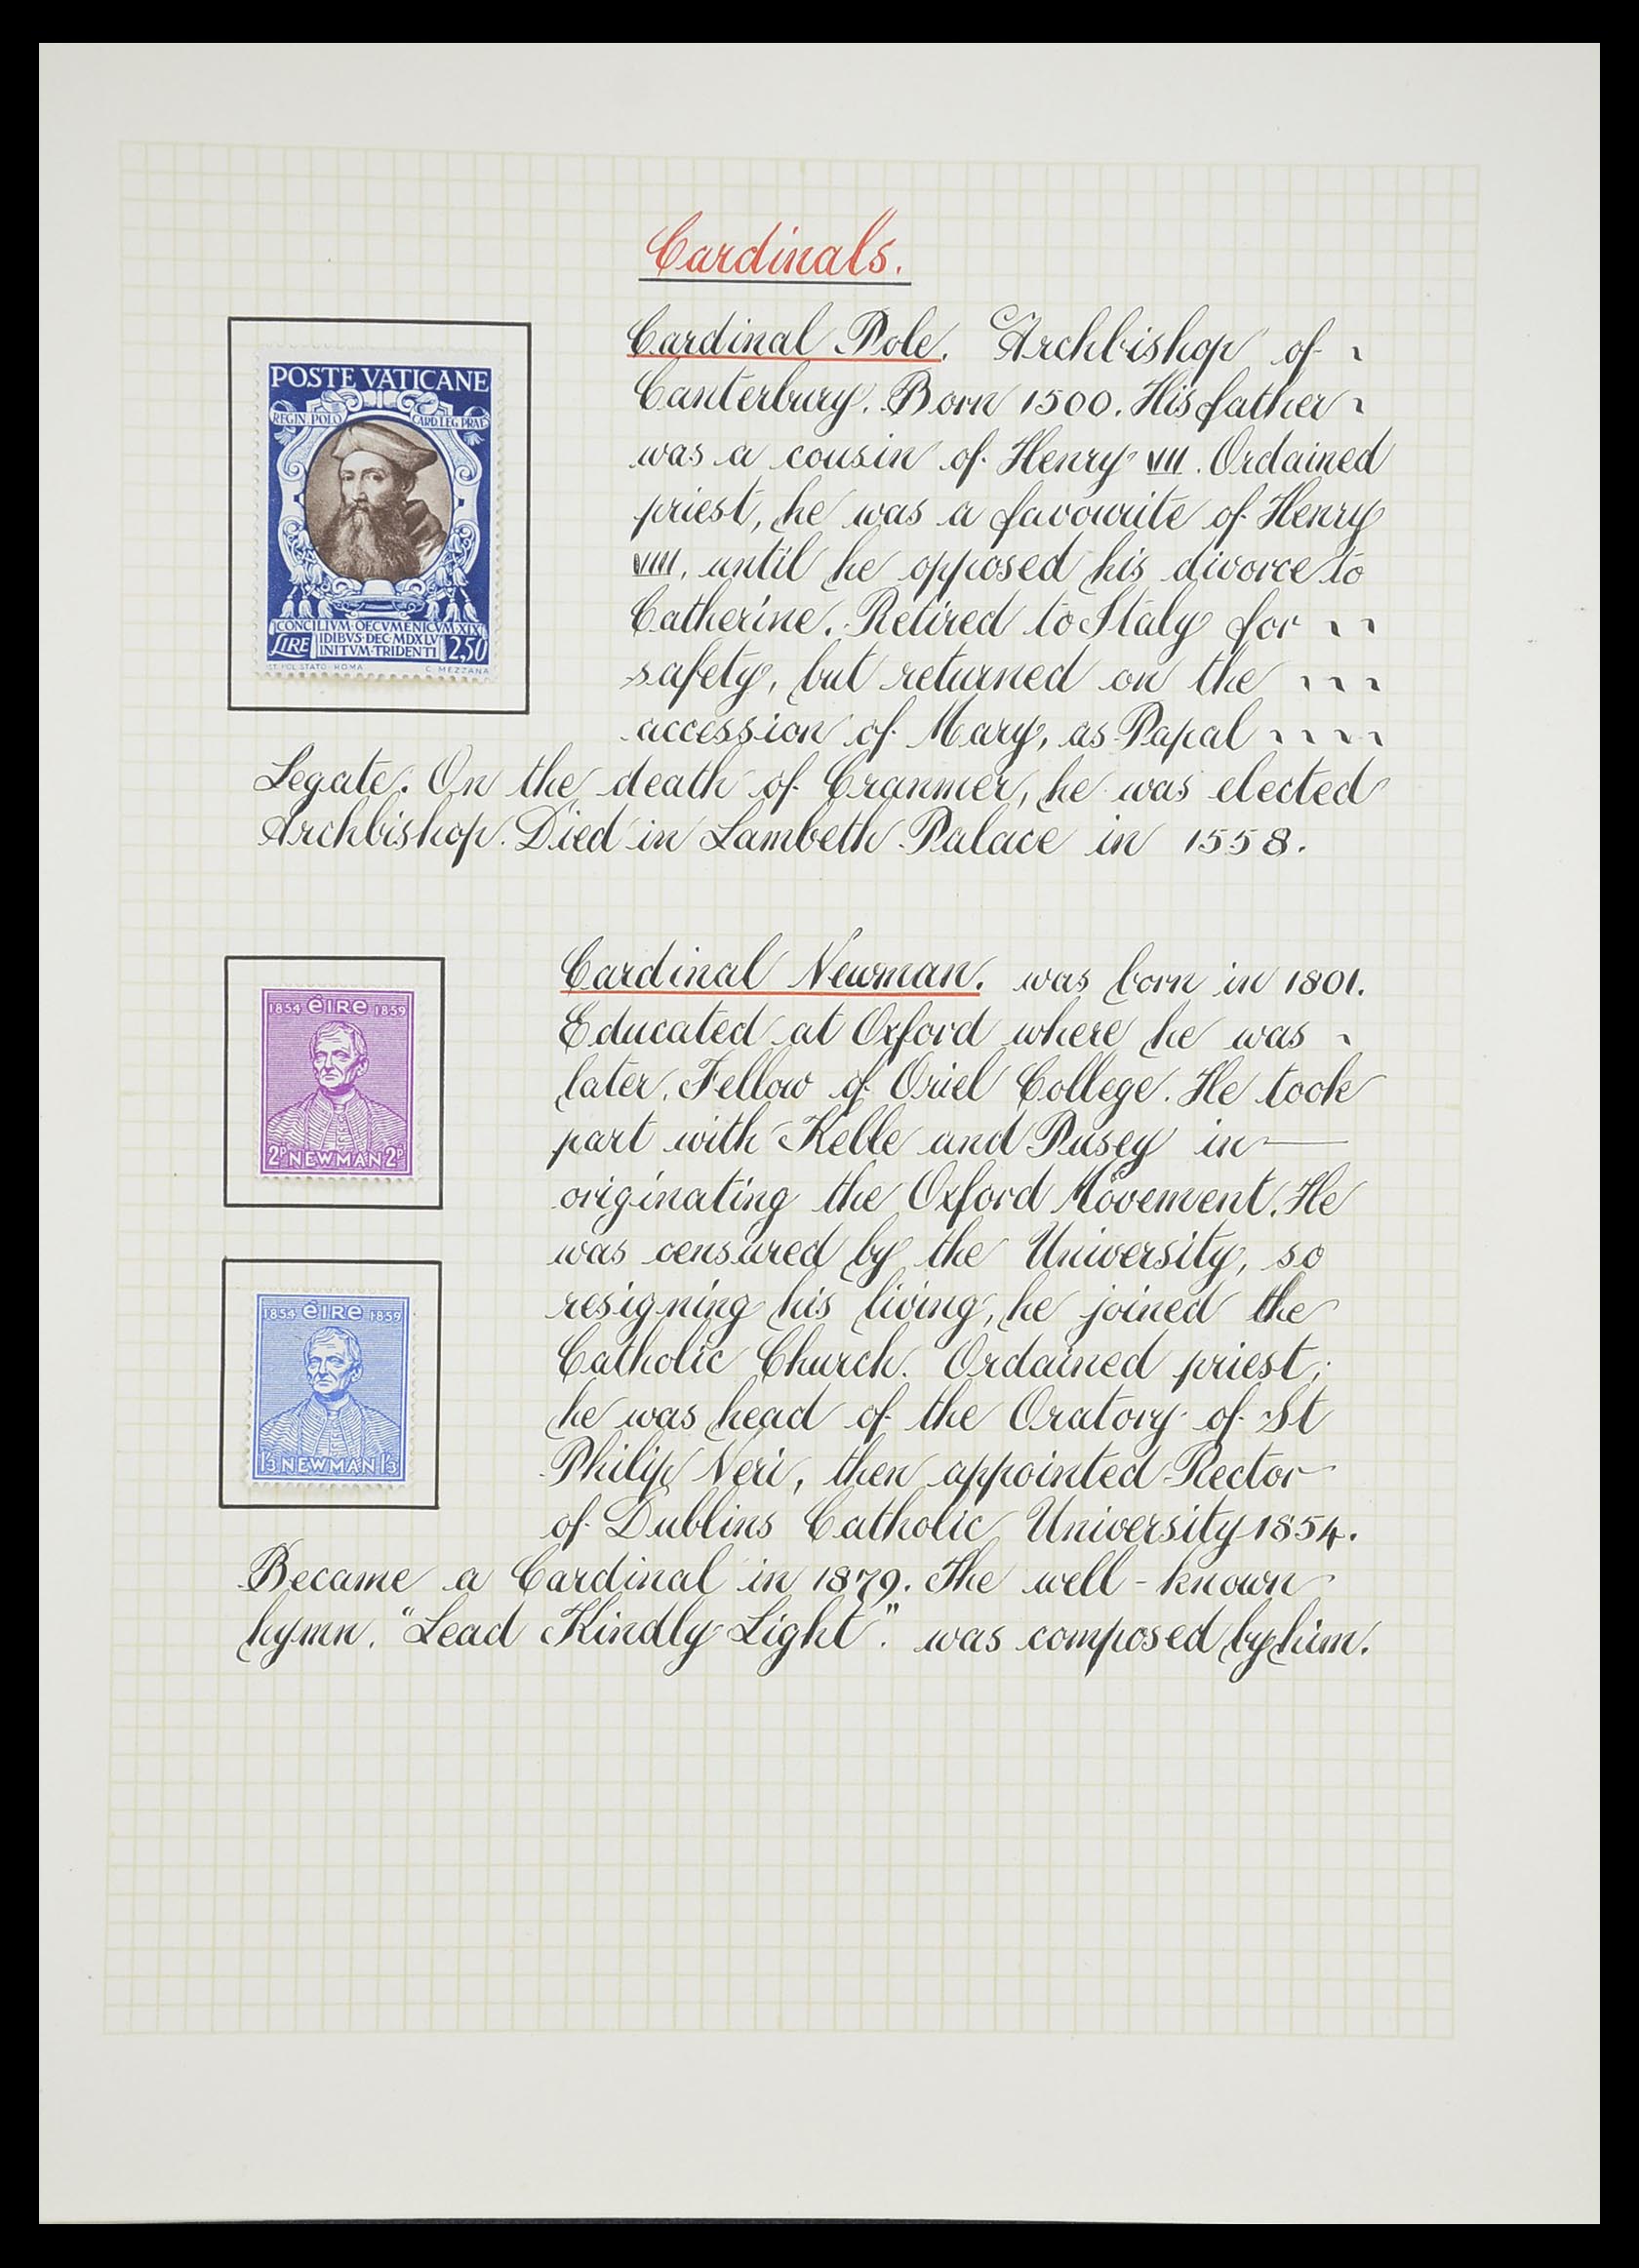 Cardinals.
POSTE VATICANE
REGIN POLO CARD LEG PRAE
CONCILIVM·OECVMENICVM XIX
LIRE IDIBVS·DEC·MDXLV 2,50
INITVM·TRIDENTI
IST. POL. STATO·ROMA C. MEZZANA
Cardinal Pole. Archbishop of
Canterbury. Born 1500. His father
was a cousin of Henry VII. Ordained
priest, he was a favourite of Henry
VIII, until he opposed his divorce to
Catherine. Retired to Italy for
safety, but returned on the
accession of Mary, as Papal
Legate. On the death of Cranmer, he was elected
Archbishop. Died in Lambeth Palace in 1558.
1854 éire 1859
2P NEWMAN 2P
1854 éire 1859
1/3 NEWMAN 1/3
Cardinal Newman. was born in 1801.
Educated at Oxford where he was
later. Fellow of Oriel College. He took
part with Keble and Pusey in
originating the Oxford Movement. He
was censured by the University, so
resigning his living, he joined the
Catholic Church. Ordained priest;
he was head of the Oratory of St
Philip Neri, then appointed Rector
of Dublins Catholic University 1854.
Became a Cardinal in 1879. The well-known
hymn. "Lead Kindly Light". was composed by him.